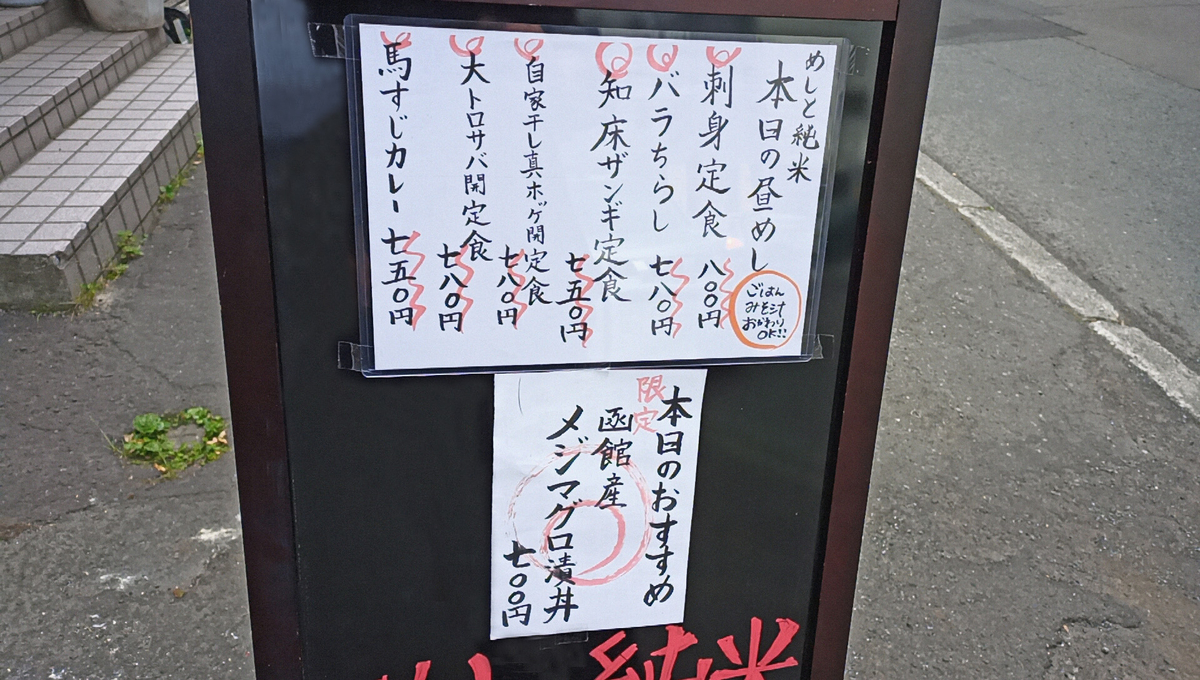 めしと純米
本日の昼めし
ごはん
みそ汁
おかわり
OK!!
刺身定食 八〇〇円
バラちらし 七八〇円
知床ザンギ定食 七五〇円
自家干し真ホッケ開定食 七八〇円
大トロサバ開定食 七八〇円
馬すじカレー 七五〇円
本日のおすすめ
限定
函館産
メジマグロ漬丼
七〇〇円
純米